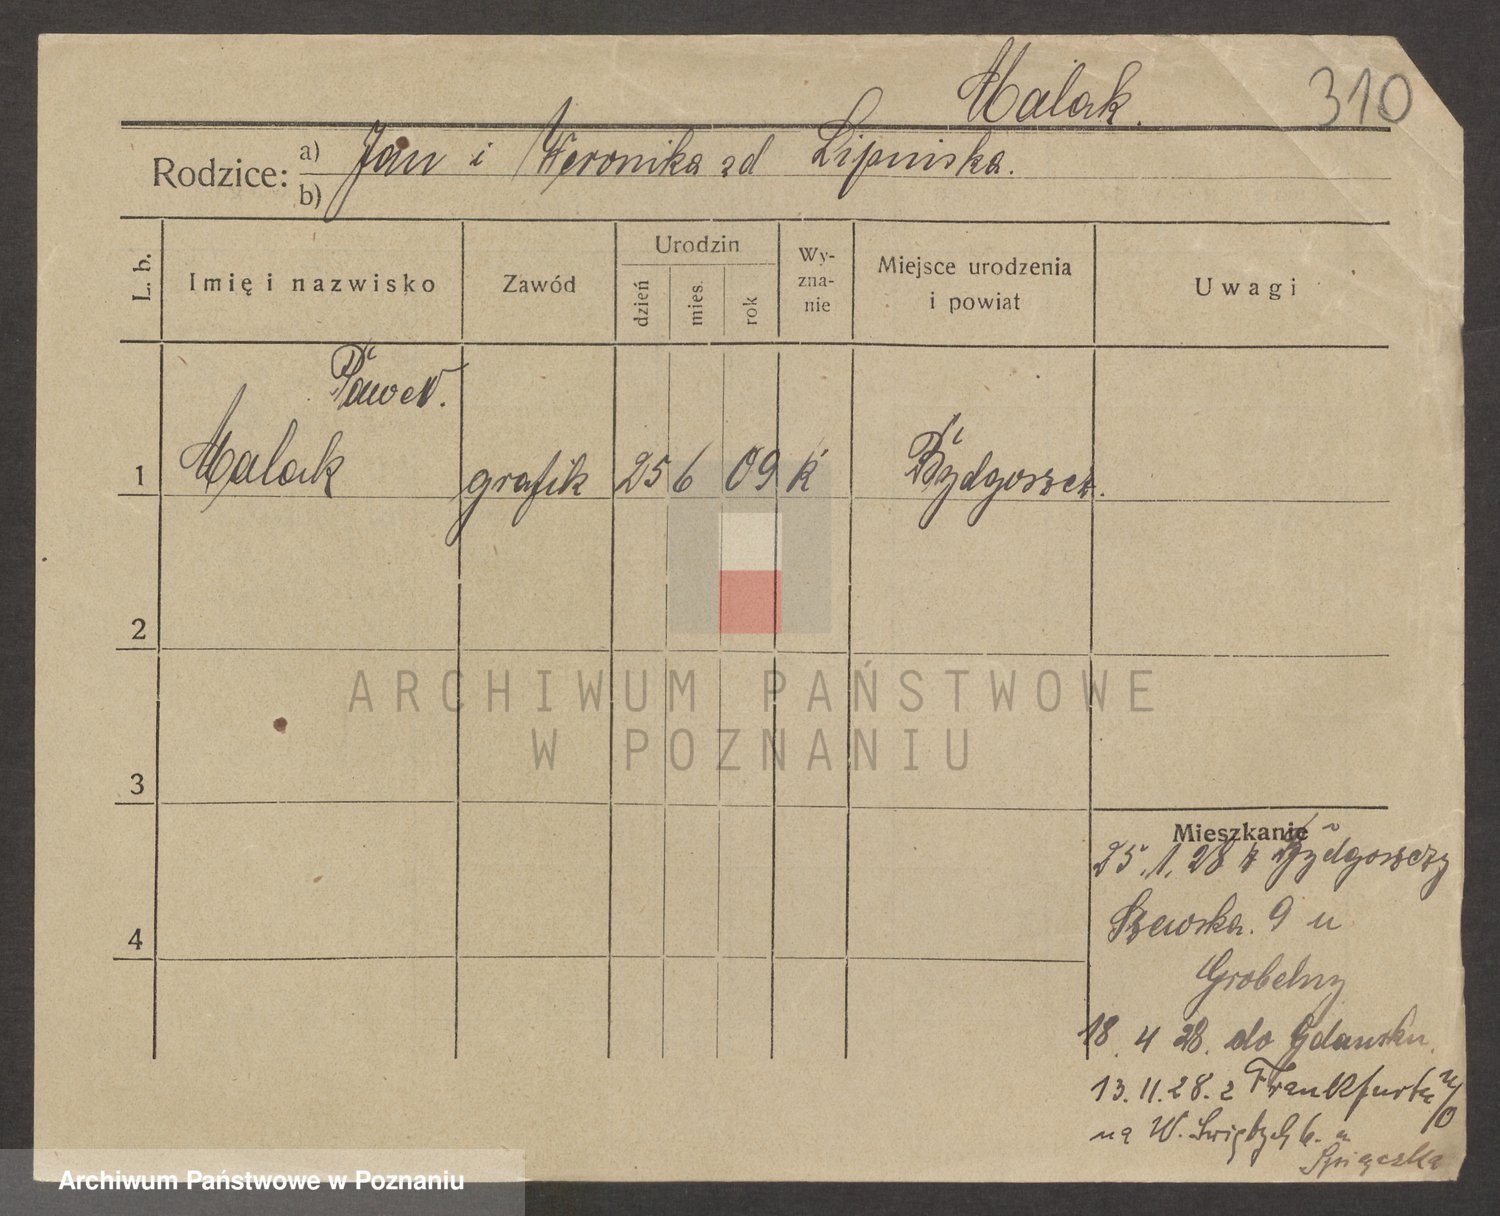 Malak. 310
Rodzice: a) Jan i Weronika zd Lipinska.
b)
L. b. Imię i nazwisko Zawód Urodzin Wy-zna-nie Miejsce urodzenia i powiat Uwagi
dzień mies. rok
Paweł.
1 Malak grafik 25 6 09 k Bydgoszcz.
2
ARCHIWUM PAŃSTWOWE
W POZNANIU
3
Mieszkanie
25.1.28 z Bydgoszczy
Szewska. 9 u
4
Grobelny
18. 4 28. do Gdansku.
13.11.28. z Frankfurtu n/O
na W. 6. u
Archiwum Państwowe w Poznaniu